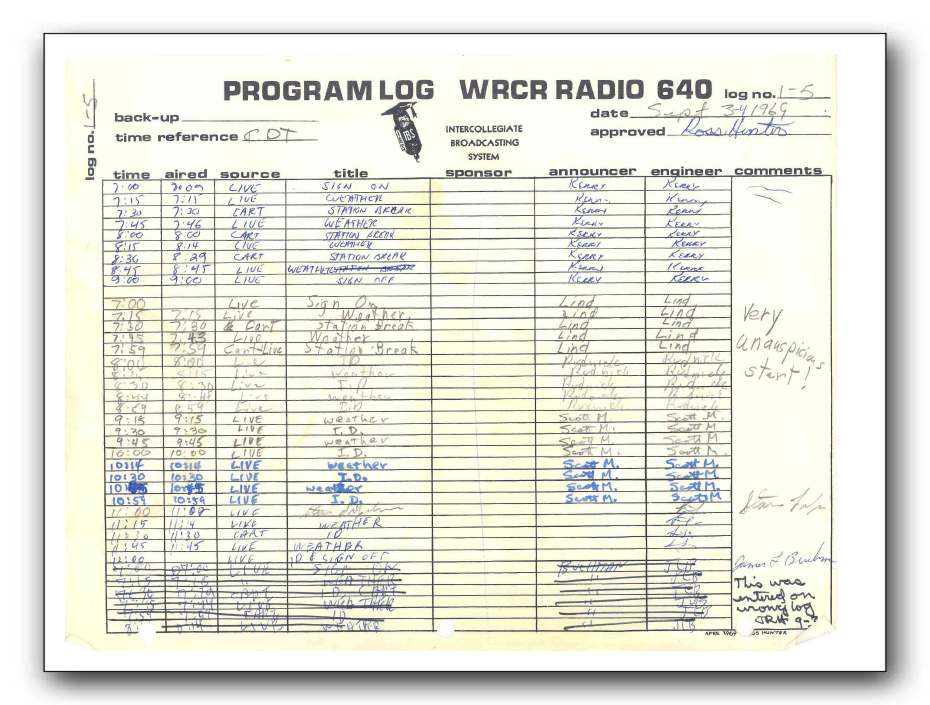 PROGRAM LOG WRCR RADIO 640 log no. 1-5
log no. 1-5
back-up
date Sept 3-4 1969
time reference CDT
approved Ross Hunter
IBS
INTERCOLLEGIATE
BROADCASTING
SYSTEM
time aired source title sponsor announcer engineer comments
7:00 7:09 LIVE SIGN ON KERRY KERRY
7:15 7:15 LIVE WEATHER KERRY KERRY
7:30 7:30 CART STATION BREAK KERRY KERRY
7:45 7:46 LIVE WEATHER KERRY KERRY
8:00 8:00 CART STATION BREAK KERRY KERRY
8:15 8:14 LIVE WEATHER KERRY KERRY
8:30 8:29 CART STATION BREAK KERRY KERRY
8:45 8:45 LIVE WEATHER STATION BREAK KERRY KERRY
9:00 9:00 LIVE SIGN OFF KERRY KERRY
7:00 Live Sign On Lind Lind
7:15 7:15 Live Weather Lind Lind
7:30 7:30 Cart Station Break Lind Lind
7:45 7:43 Live Weather Lind Lind
7:59 7:59 Cart-Live Station Break Lind Lind
Very
unauspicious
start!
8:00 ID Rudnick Rudnick
8:15 Live weather Rudnick Rudnick
8:30 8:30 Live I.D. Rudnick Rudnick
weather Rudnick Rudnick
8:59 8:59 Live I.D. Rudnick Rudnick
9:15 9:15 LIVE weather Scott M. Scott M.
9:30 9:30 LIVE I.D. Scott M. Scott M.
9:45 9:45 LIVE weather Scott M. Scott M.
10:00 10:00 LIVE I.D. Scott M. Scott M.
10:14 10:14 LIVE weather Scott M. Scott M.
10:30 10:30 LIVE I.D. Scott M. Scott M.
LIVE weather Scott M. Scott M.
10:59 10:59 LIVE I.D. Scott M. Scott M.
11:00 LIVE
11:15 11:14 LIVE WEATHER
11:30 11:30 CART ID
11:45 11:45 LIVE WEATHER
12:00 LIVE ID & SIGN OFF
LIVE SIGN ON JCB
7:15 WEATHER JCB
I.D. JCB
LIVE WEATHER JCB
7:59 ID JCB
LIVE WEATHER JCB
This was
entered on
wrong log
JRH 9-3
APRIL 1969 ROSS HUNTER